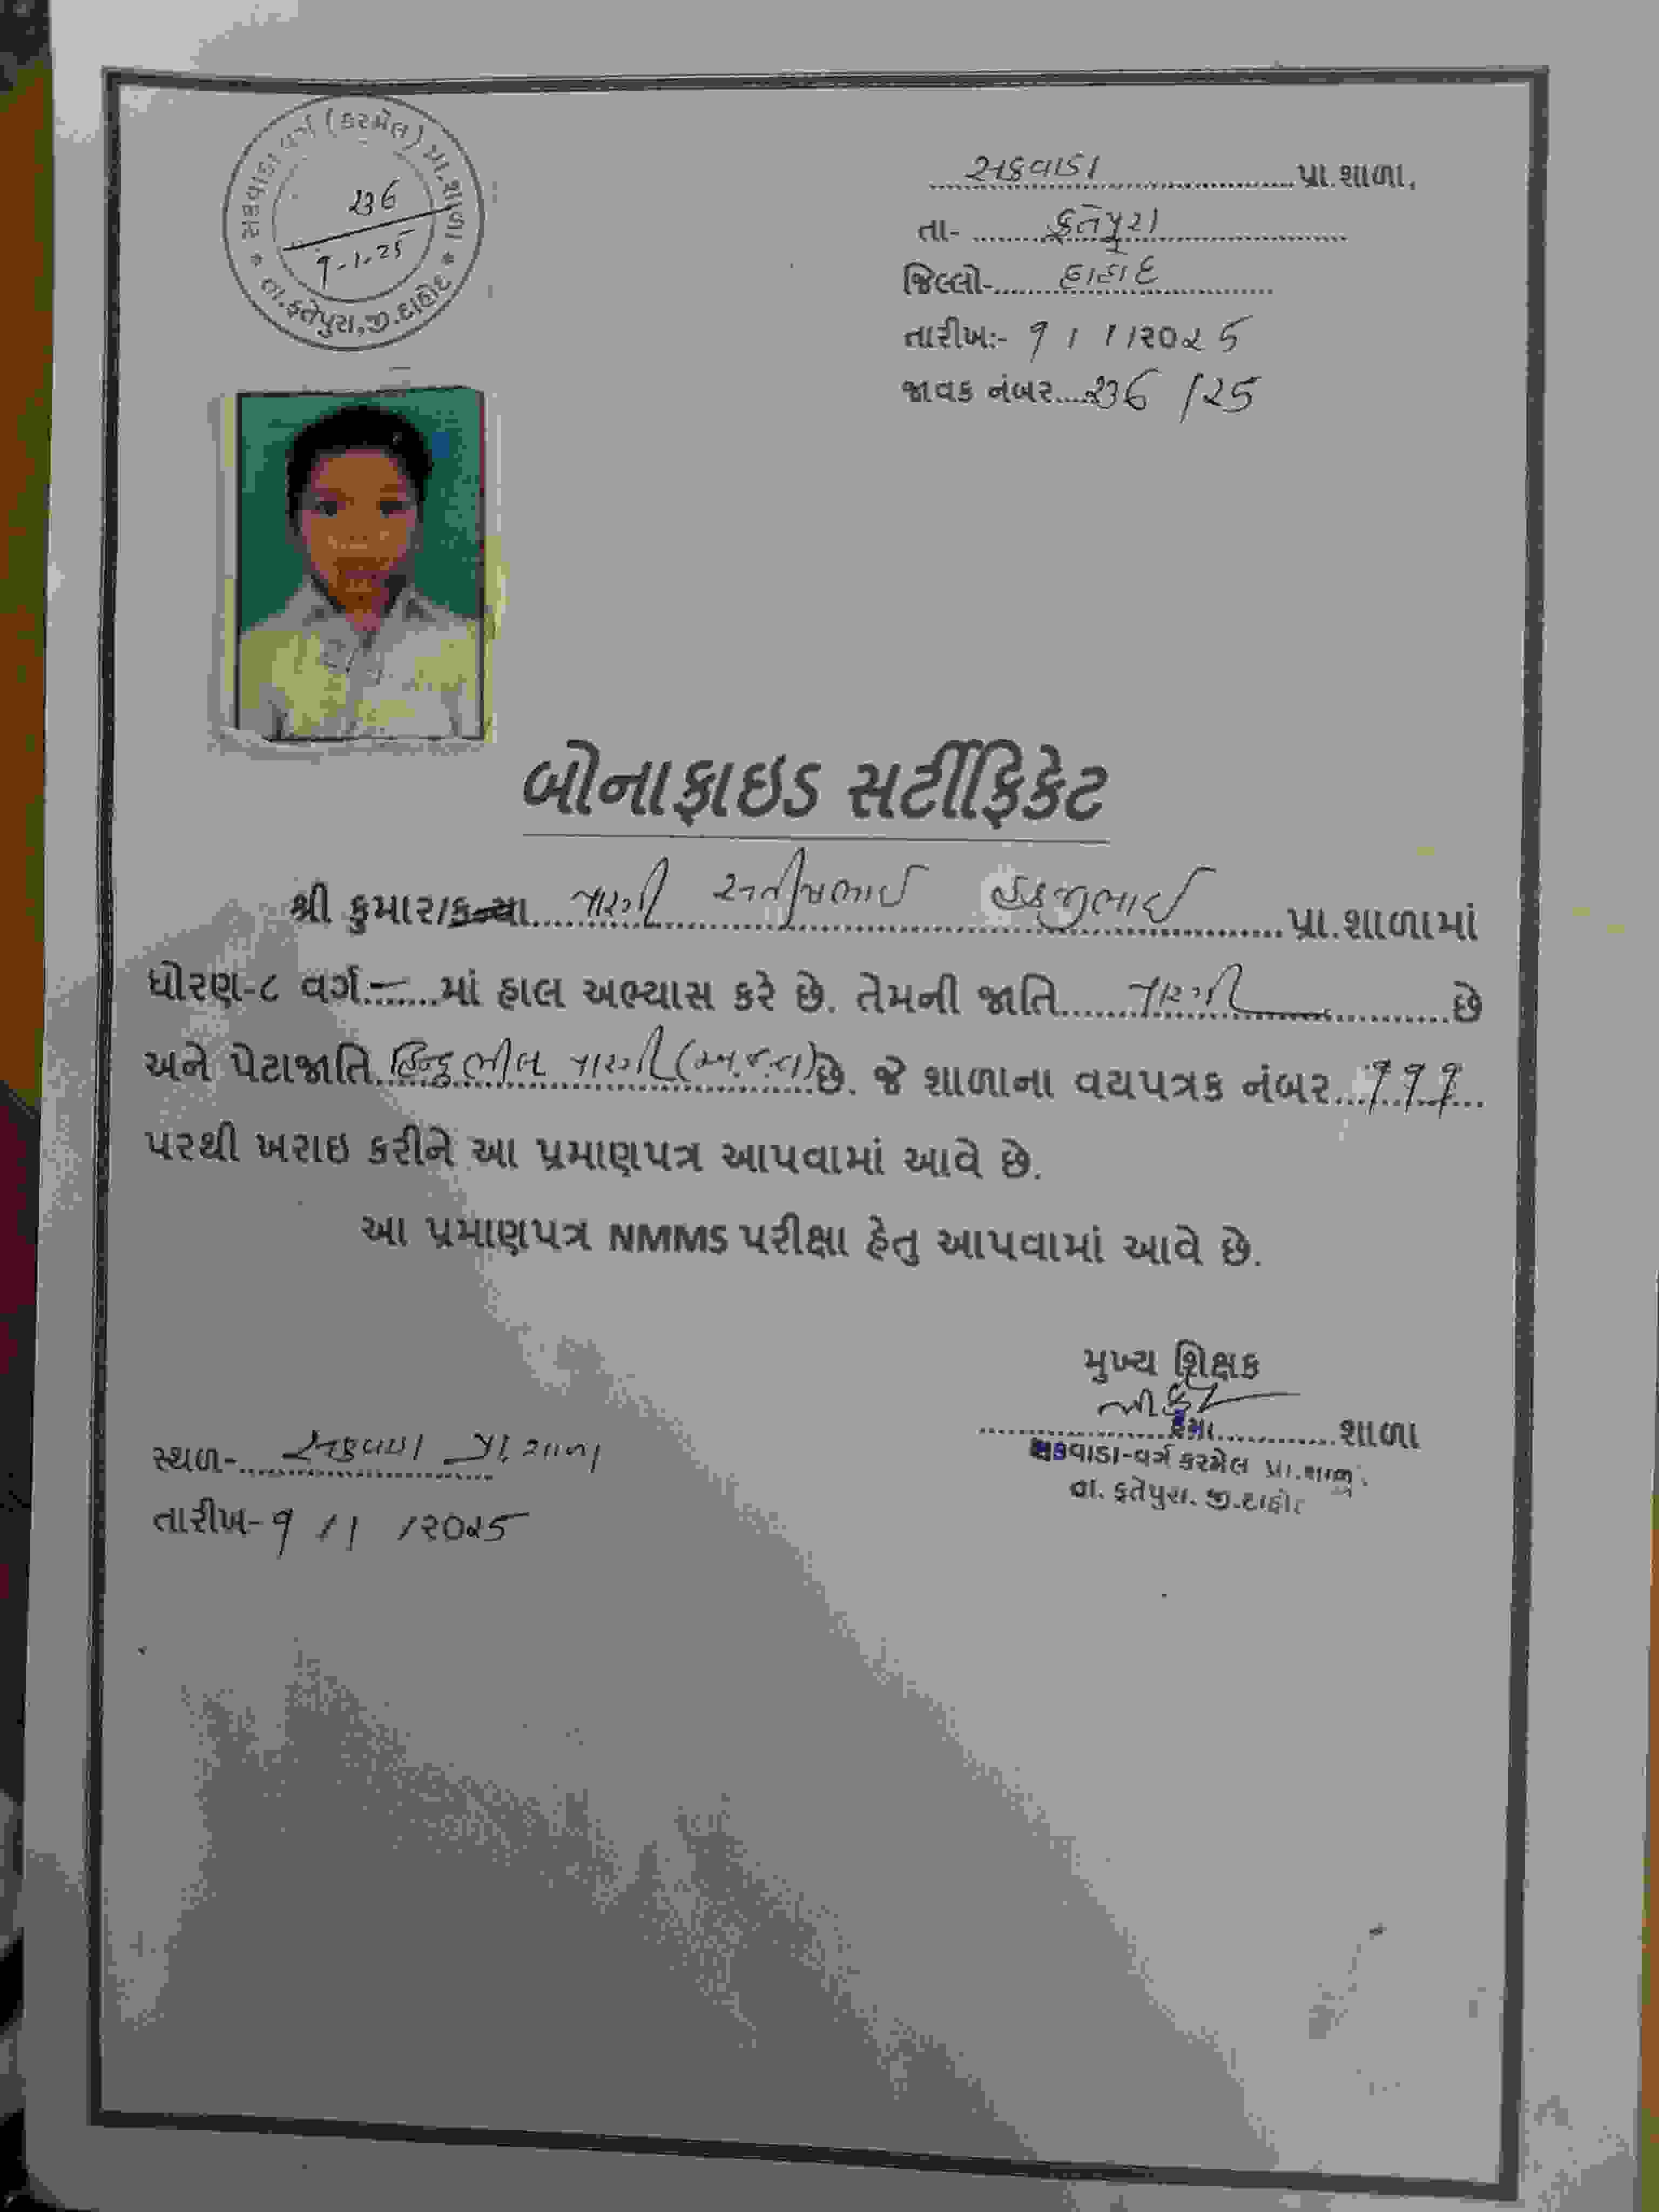 સકવાડા વર્ગ (કરમેલ) પ્રા.શાળા
* તા.ફતેપુરા,જી.દાહોદ *
236
૧-૧-25
સકવાડા પ્રા.શાળા,
તા- ફતેપુરા
જિલ્લો- દાહોદ
તારીખઃ- ૧ / ૧ /૨૦૨૫
જાવક નંબર....236 /25
બોનાફાઇડ સર્ટીફિકેટ
શ્રી કુમાર/કન્યા.... પારગી સતીષભાઈ પ્રા.શાળામાં
ધોરણ-૮ વર્ગ.–.....માં હાલ અભ્યાસ કરે છે. તેમની જાતિ..... પારગી ........છે
અને પેટાજાતિ હિન્દુ ભીલ પારગી (અ.જ.જા) છે. જે શાળાના વયપત્રક નંબર...૧૧૧....
પરથી ખરાઇ કરીને આ પ્રમાણપત્ર આપવામાં આવે છે.
આ પ્રમાણપત્ર NMMS પરીક્ષા હેતુ આપવામાં આવે છે.
મુખ્ય શિક્ષક
શાળા
સકવાડા-વર્ગ કરમેલ પ્રા.શાળા
તા. ફતેપુરા. જી.દાહોદ
સ્થળ- સકવાડા પ્રા.શાળા
તારીખ- ૧ /૧ /૨૦૨૫